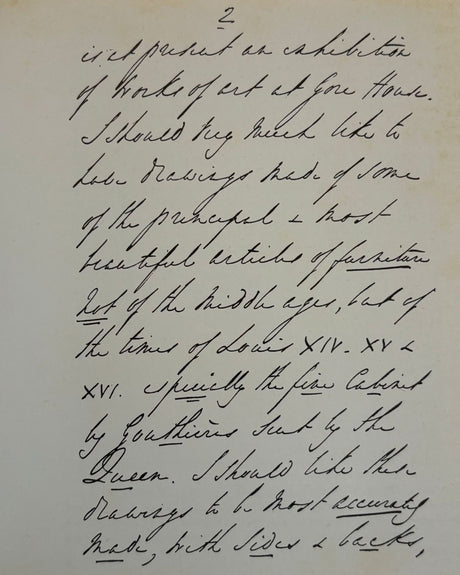 2
is at present an exhibition
of works of art at Gore House.
I should very much like to
have drawings made of some
of the principal & most
beautiful articles of furniture
Not of the Middle ages, but of
the times of Louis XIV. XV &
XVI. especially the fine Cabinet
by Gouthières sent by the
Queen. I should like these
drawings to be most accurately
made, with sides & backs,